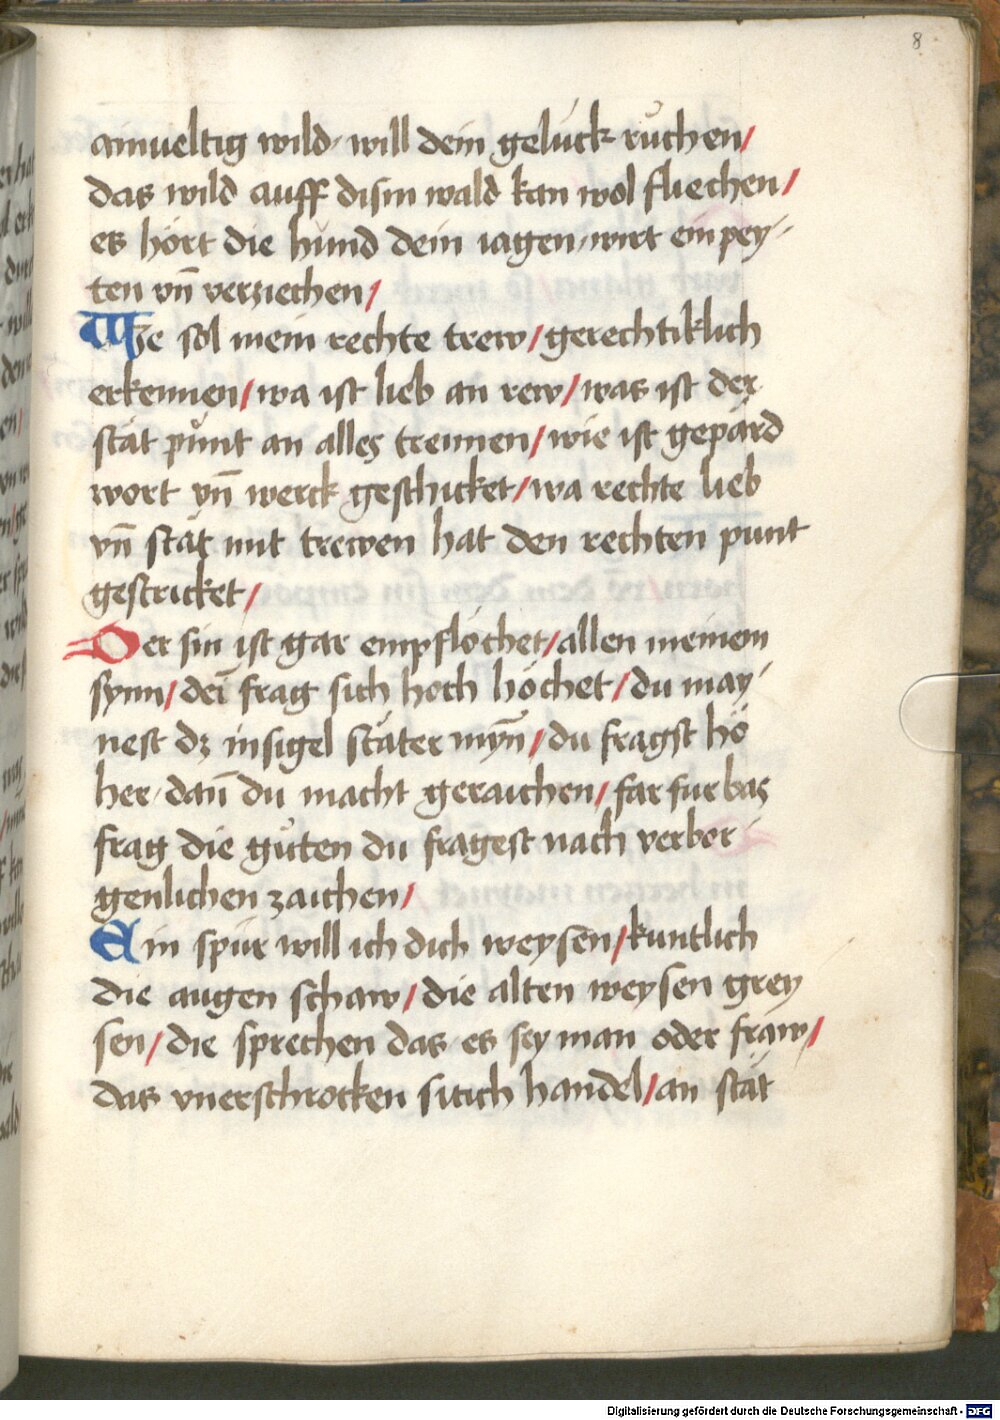 8
ainueltig wild will dein gelück růchen/
das wild auff dism wald kan wol fliechen/
es hört die hund dein iagen wirt ein pey-
ten vn̄ verziechen/
We sol mein rechte trew/gerechtiklich
erkennen/wa ist lieb an rew/was ist der
stät punt an alles trennen/wie ist gepärd
wort vn̄ werck geschicket/wa rechte lieb
vn̄ stät mit trewen hat den rechten punt
gestricket/
Der sin ist gar empflöchet/allen meinem
synn/dei frag sich hoch höchet/du may-
nest dz insigel stäter myn̄/du fragst hö
her dan̄ du macht geraichen/far furbas
frag die gůten du fragest nach verbor
genlichen zaichen/
Ein spür will ich dich weysen/kuntlich
die augen schaw/die alten weysen grey
sen/die sprechen das es sey man oder fraw/
das vnerschrocken sitich handel/an stät
Digitalisierung gefördert durch die Deutsche Forschungsgemeinschaft - DFG